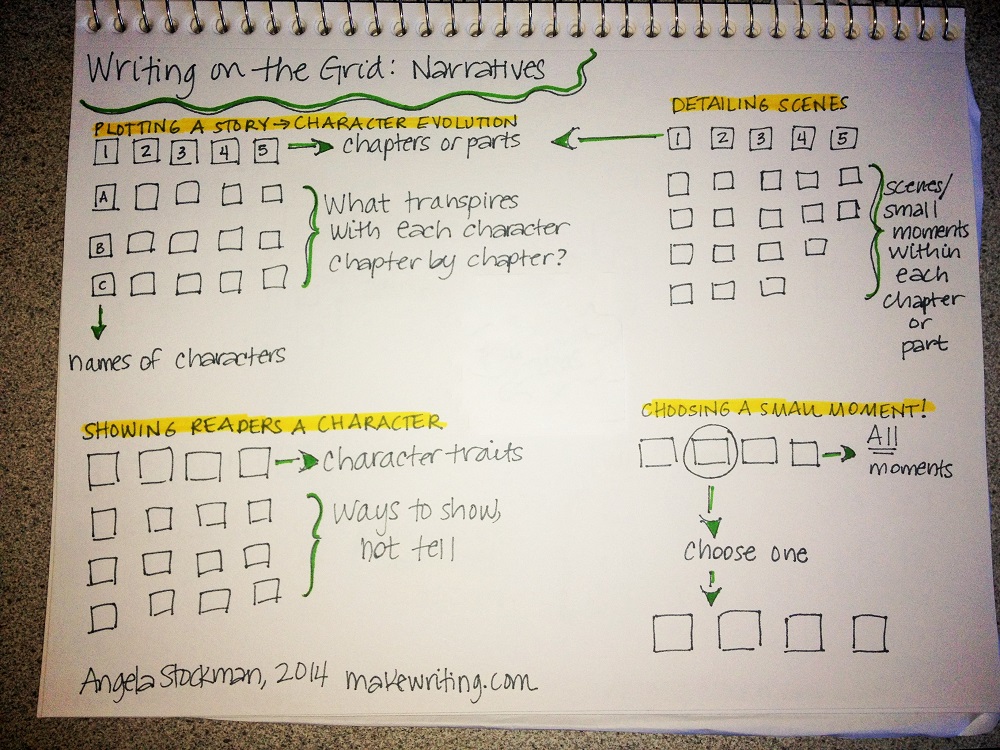 Writing on the Grid: Narratives
PLOTTING A STORY → CHARACTER EVOLUTION
1 2 3 4 5 → chapters or parts
A
B
C
What transpires
with each character
chapter by chapter?
names of characters
DETAILING SCENES
1 2 3 4 5
scenes/
small
moments
within
each
chapter
or
part
SHOWING READERS A CHARACTER
Character traits
Ways to show,
not tell
CHOOSING A SMALL MOMENT!
All
moments
Choose one
Angela Stockman, 2014 makewriting.com